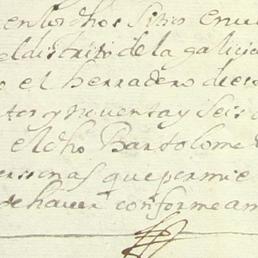 en los dhos Sitio en
el distrito de la galicia
o el herradero de es
tos y noventa y seis
el dho Bartolome
ersonas que permie
de haver conforme am